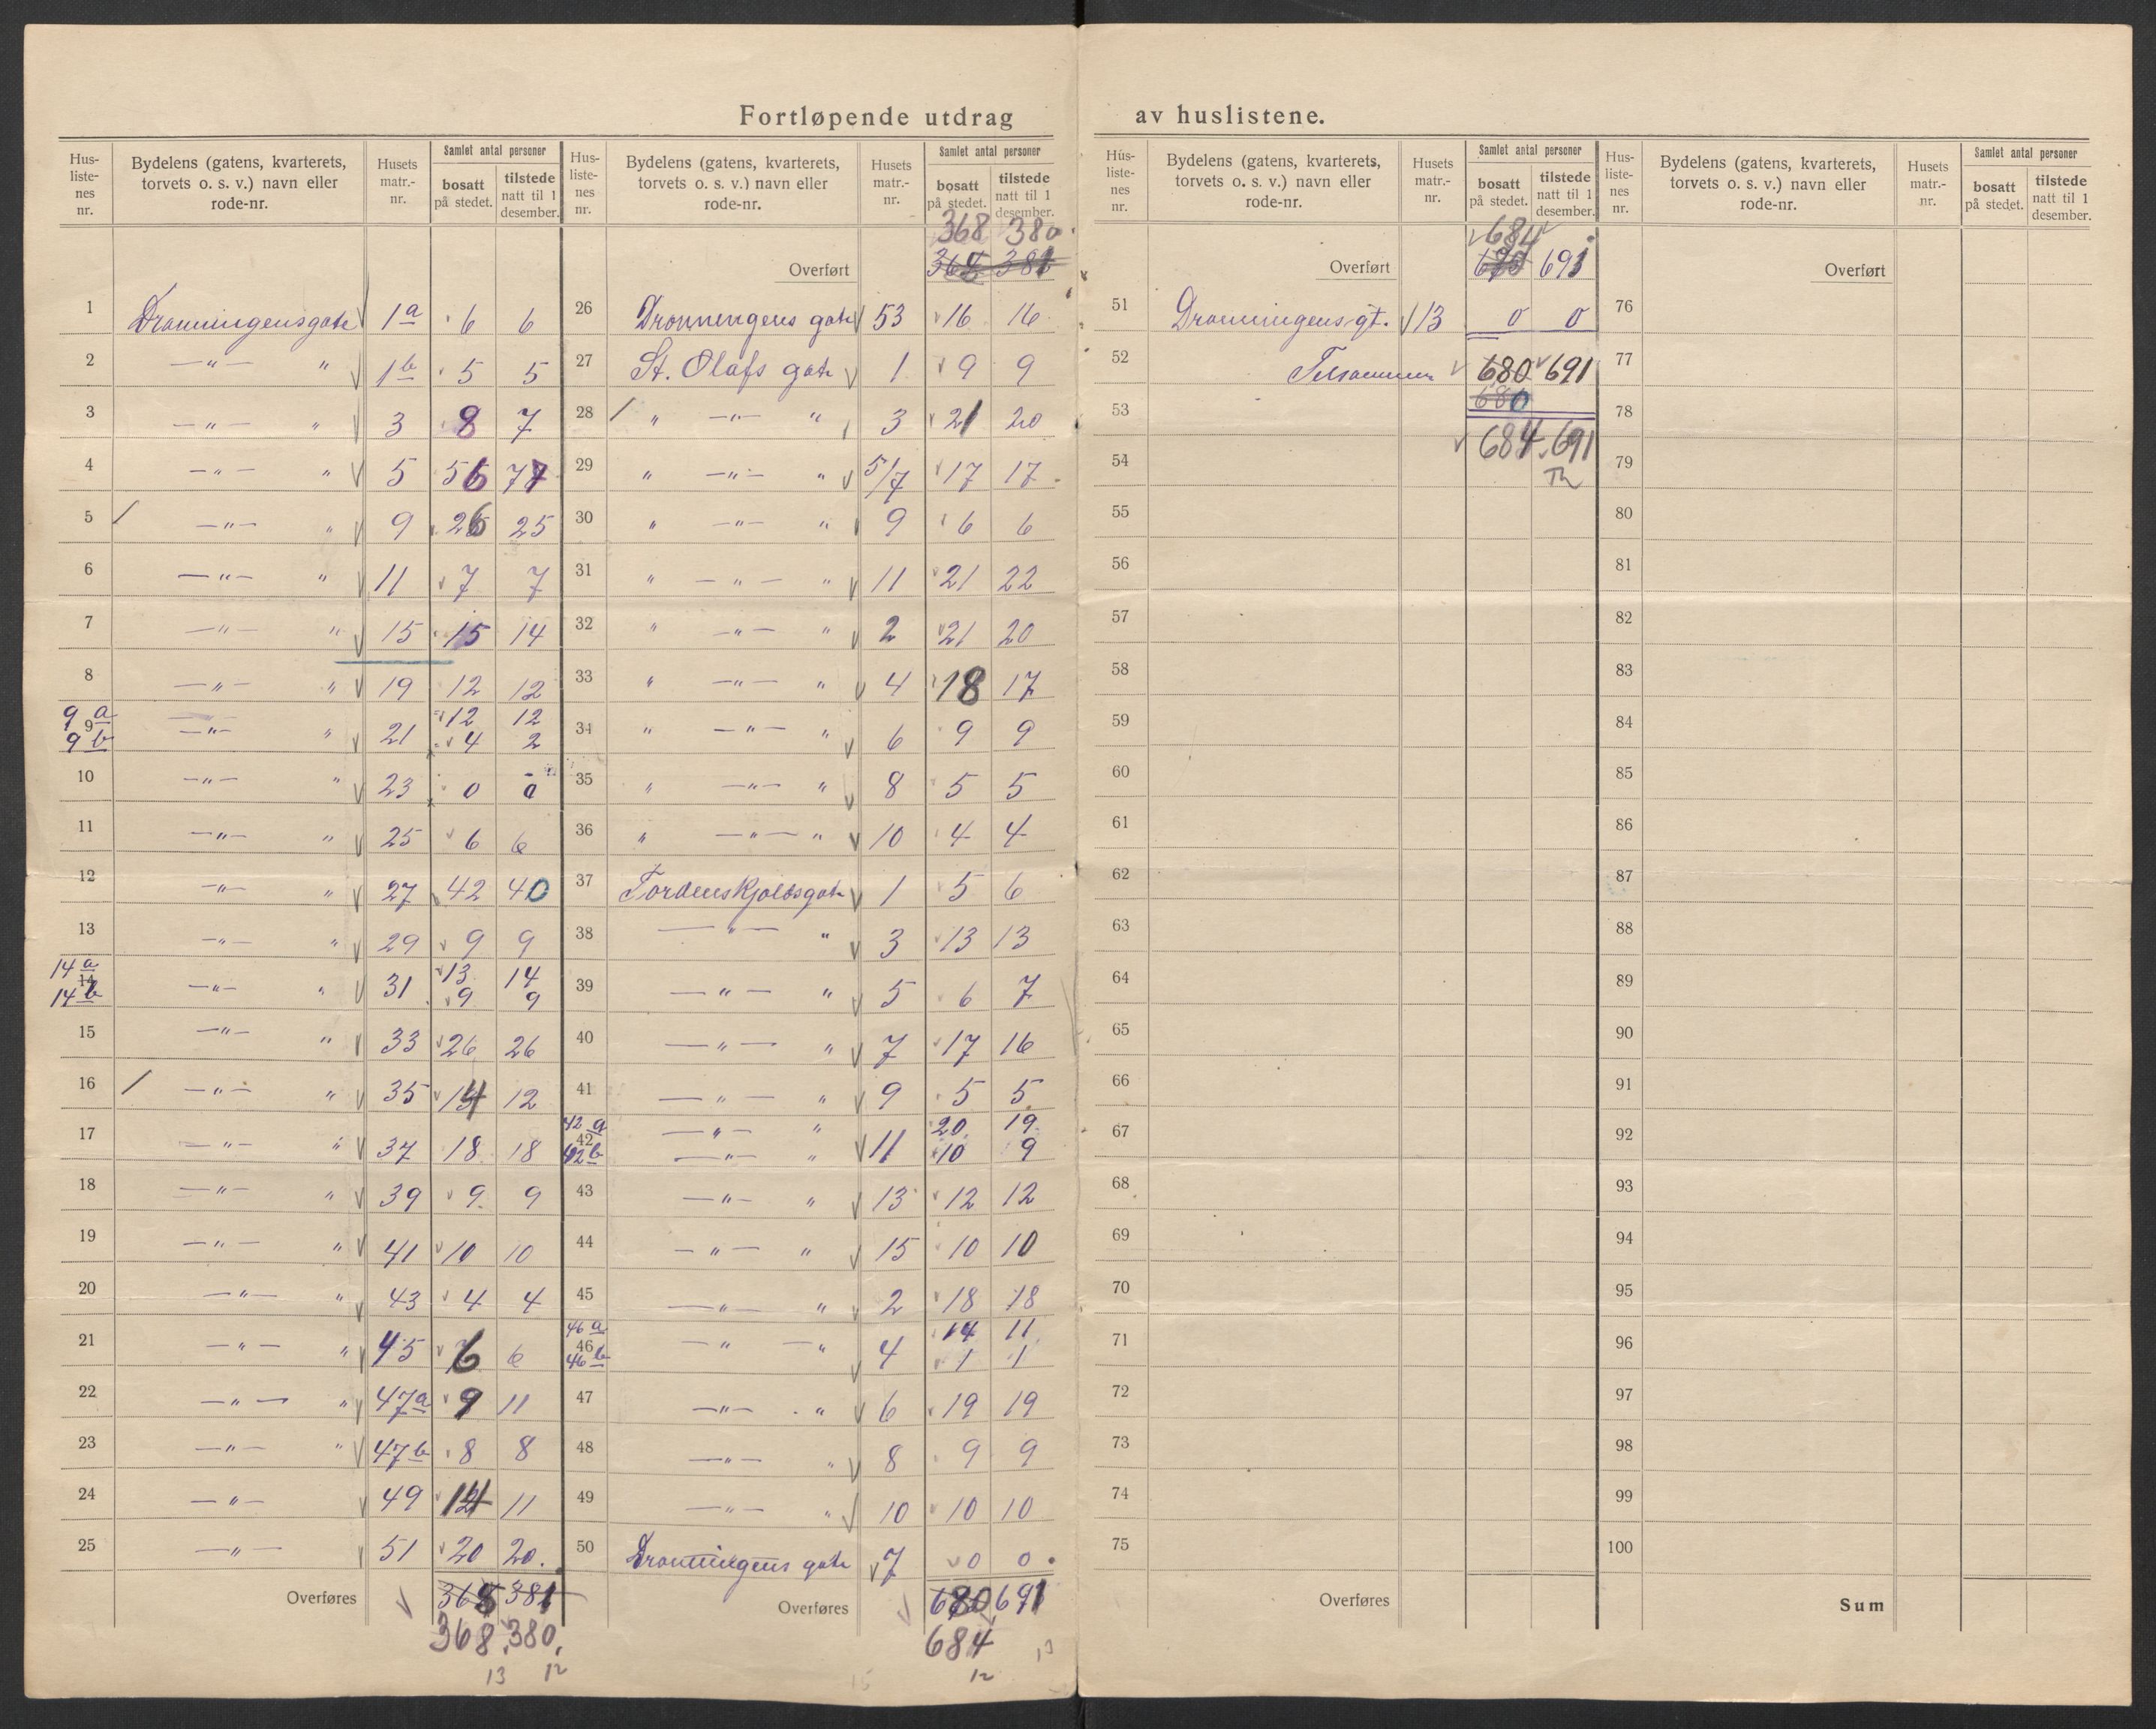 Fortløpende utdrag av huslistene.
Hus-listenes nr. Bydelens (gatens, kvarterets, torvets o. s. v.) navn eller rode-nr. Husets matr.-nr. Samlet antal personer bosatt på stedet. tilstede natt til 1 desember.
1 Dronningensgate 1a 6 6
2 —"— " 1b 5 5
3 —"— " 3 8 7
4 —"— " 5 56 77
5 —"— " 9 26 25
6 —"— " 11 7 7
7 —"— " 15 15 14
8 —"— " 19 12 12
9a 12 12
9 —"— " 21
9b 4 2
10 —"— " 23 0 0
11 —"— " 25 6 6
12 —"— " 27 42 40
13 —"— " 29 9 9
14a 13 14
14 —"— " 31
14b 9 9
15 —"— " 33 26 26
16 —"— " 35 14 12
17 —"— " 37 18 18
18 —"— " 39 9 9
19 —"— " 41 10 10
20 —"— " 43 4 4
21 —"— " 45 6 6
22 —"— " 47a 9 11
23 —"— " 47b 8 8
24 —"— 49 14 11
25 —"— 51 20 20.
Overføres 368 381
368. 380.
13 12
Hus-listenes nr. Bydelens (gatens, kvarterets, torvets o. s. v.) navn eller rode-nr. Husets matr.-nr. Samlet antal personer bosatt på stedet. tilstede natt til 1 desember.
368 380
Overført 381
26 Dronningens gate 53 16 16
27 St. Olafs gate 1 9 9
28 " —"— " 3 21 20
29 " —"— " 5/7 17 17
30 " —"— " 9 6 6
31 " —"— " 11 21 22
32 " —"— " 2 21 20
33 " —"— " 4 18 17
34 " —"— " 6 9 9
35 " —"— " 8 5 5
36 " —"— " 10 4 4
37 Tordenskjoldsgate 1 5 6
38 —"— " 3 13 13
39 —"— " 5 6 7
40 —"— " 7 17 16
41 —"— " 9 5 5
42a —"— " 20 19
42 11
42b —"— " 10 9
43 —"— " 13 12 12
44 —"— " 15 10 10
45 —"— " 2 18 18
46a 14 11
46 —"— " 4
46b 1 1
47 —"— " 6 19 19
48 —"— " 8 9 9
49 —"— " 10 10 10
50 Dronningens gate 7 0 0
Overføres 680 691
684
12 13
Hus-listenes nr. Bydelens (gatens, kvarterets, torvets o. s. v.) navn eller rode-nr. Husets matr.-nr. Samlet antal personer bosatt på stedet. tilstede natt til 1 desember.
684
Overført 691
51 Dronningens gt. 13 0 0
52 Tilsammen 680 691
680
53
684 691
54
55
56
57
58
59
60
61
62
63
64
65
66
67
68
69
70
71
72
73
74
75
Overføres
Hus-listenes nr. Bydelens (gatens, kvarterets, torvets o. s. v.) navn eller rode-nr. Husets matr.-nr. Samlet antal personer bosatt på stedet. tilstede natt til 1 desember.
Overført
76
77
78
79
80
81
82
83
84
85
86
87
88
89
90
91
92
93
94
95
96
97
98
99
100
Sum